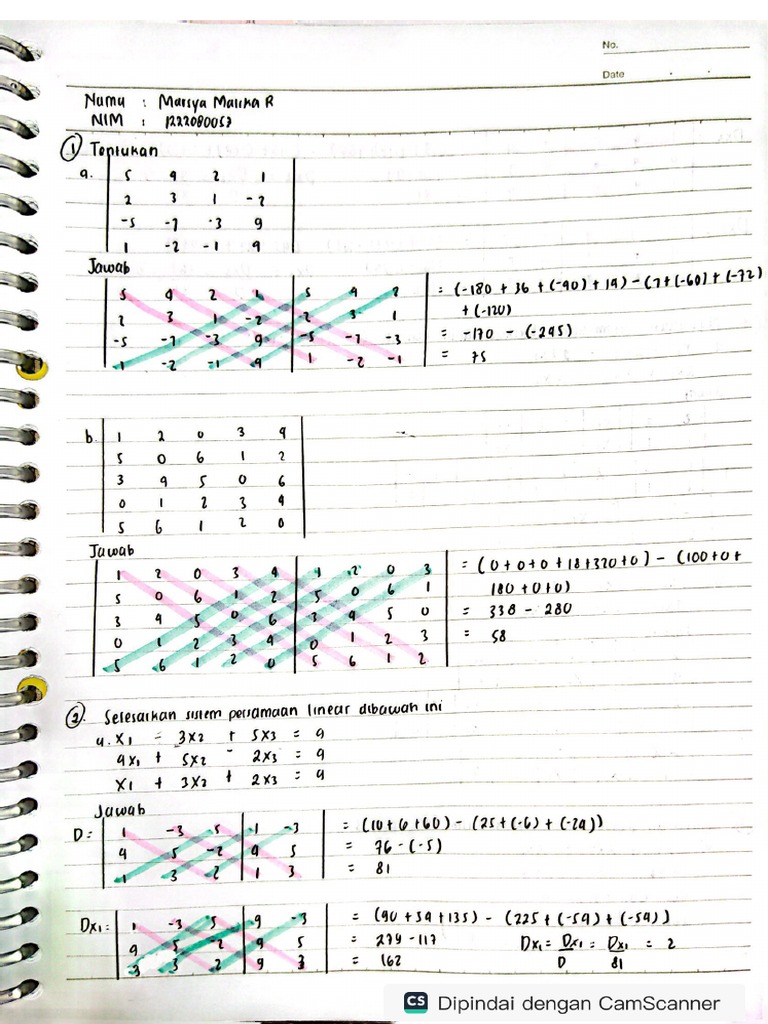 No.
Date
Nama : Marsya Malika R
NIM : 1222080057
① Tentukan
a. 5 4 2 1
2 3 1 -2
-5 -7 -3 9
1 -2 -1 9
Jawab
5 4 2 1 5 4 2 = (-180 + 36 + (-40) + 14) - (7 + (-60) + (-72)
2 3 1 -2 2 3 1 + (-120)
-5 -7 -3 9 -5 -7 -3 = -170 - (-245)
1 -2 -1 9 1 -2 -1 = 75
b. 1 2 0 3 4
5 0 6 1 2
3 4 5 0 6
0 1 2 3 4
5 6 1 2 0
Jawab
1 2 0 3 4 1 2 0 3 = (0+0+0+18+320+0) - (100+0+
5 0 6 1 2 5 0 6 1 180+0+0)
3 4 5 0 6 3 4 5 0 = 338 - 280
0 1 2 3 4 0 1 2 3 = 58
5 6 1 2 0 5 6 1 2
②. Selesaikan sistem persamaan linear dibawah ini
a. x1 - 3x2 + 5x3 = 9
4x1 + 5x2 - 2x3 = 9
x1 + 3x2 + 2x3 = 9
Jawab
D = 1 -3 5 1 -3 = (10+6+60) - (25+(-6)+(-24))
4 5 -2 4 5 = 76 - (-5)
1 3 2 1 3 = 81
Dx1 = -3 5 9 -3 = (90+54+135) - (225+(-54)+(-54))
9 5 -2 9 5 = 279 - 117 Dx1 = Dx1/D = Dx1/81 = 2
3 2 9 3 = 162
CS Dipindai dengan CamScanner